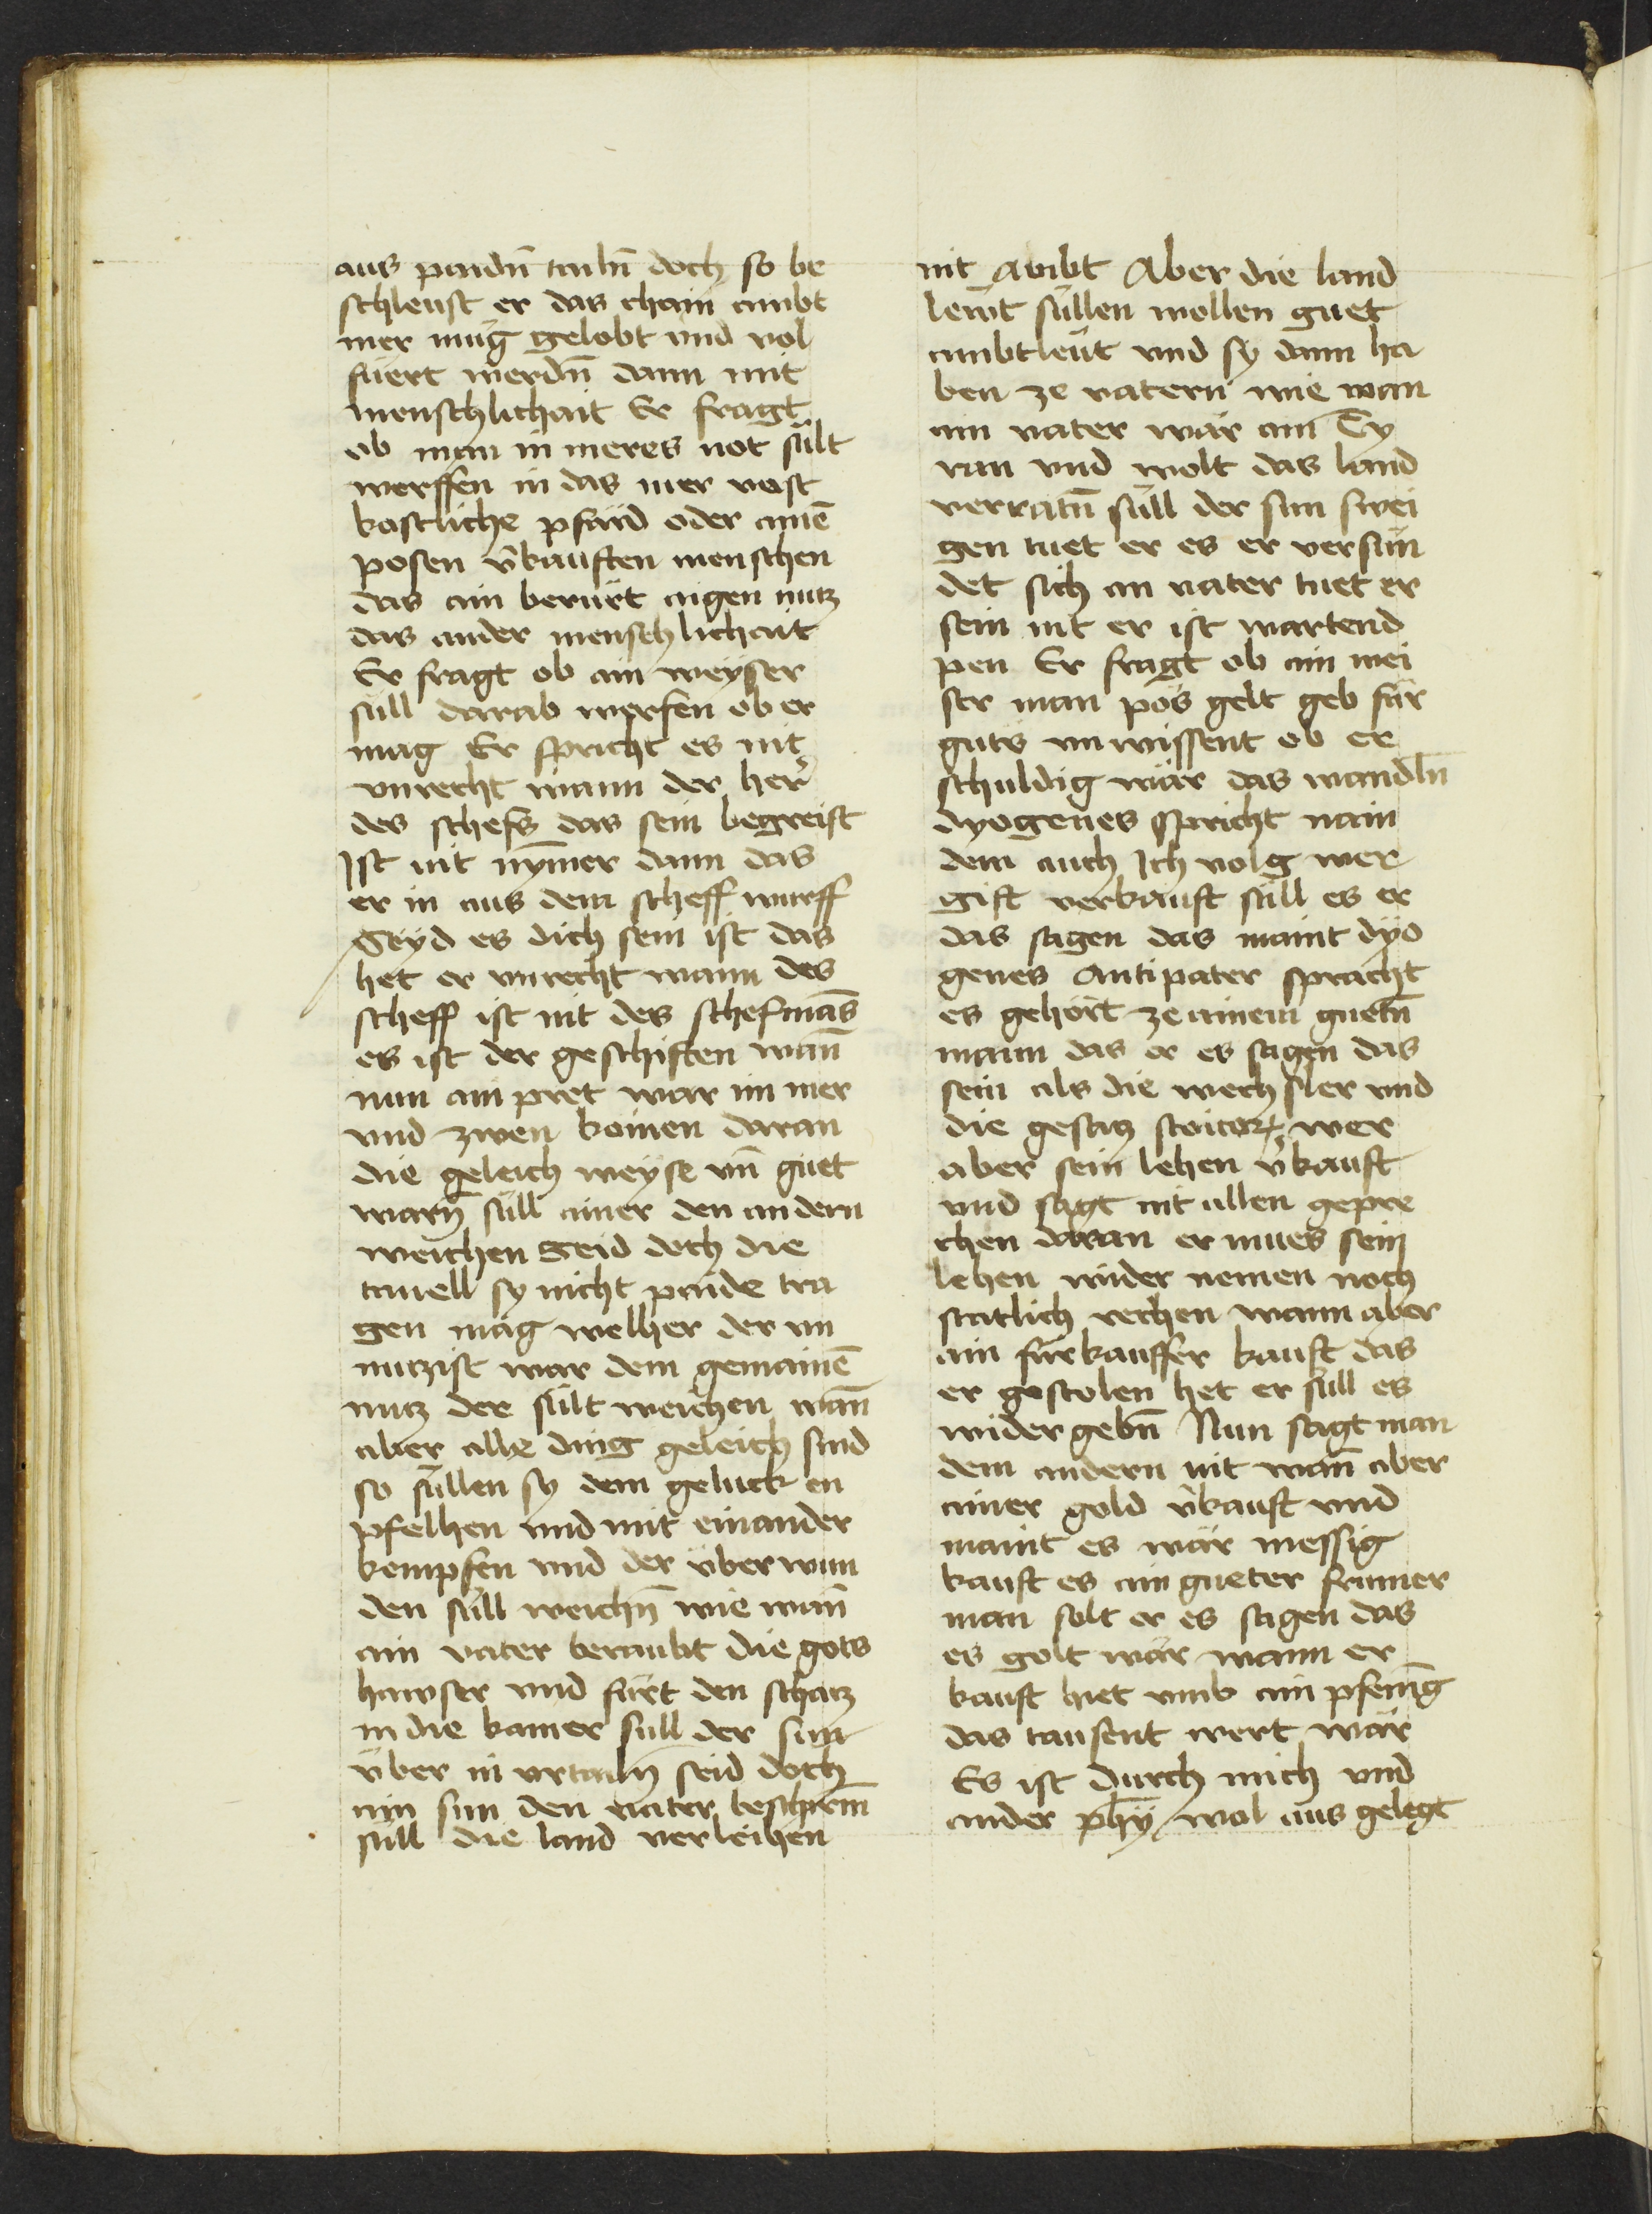 aus paidn̄ tailn̄ doch so be
schleust er das chain ambt
mer mug gelobt und vol
fuert werdn̄ dann mit
menschlichait Er fragt
ob man in meres not sült
werffen in das mer vast
kostliche pfärd oder ainē
posen v̄kauften menschen
das ain berürt aigen nutz
das ander menschlichait
Er fragt ob ain weyser
süll darab werfen ob er
mag Er spricht es nit
vnrecht wann der her
des schefs das sein begreift
Ist nit nymer dann das
er in aus dem scheff wurff
Seyd es dich sein ist das
het er vnrecht wann des
scheff ist nit des schefmās
es ist der geschiften wan̄
nun ain pret war im mer
vnd zwen komen daran
die geleich weyse vn̄ guet
warn̄ süll ainer den andern
weichen Seid doch die
tauell sy nicht paide tra
gen mag welher der un
nutzist war dem gemainē
nutz der sült weichen wan̄
aber alle ding geleich sind
so süllen sy dem geluck en
pfelhen vnd mit einander
kempfen vnd der über wun
den süll weichn̄ wie wan̄
ain vater beraubt die gots
hawser vnd fürt den schatz
in die kamer süll der sun
über in vrtailn̄ seid doch
ain sun den vater beschirm̄
süll die land verleihen
nit Awibt Aber die land
lewt süllen wollen guet
ambtleut vnd sy dann ha
ben ze vatern wie wan
ain vater wär ain Ty
ran vnd wolt das land
verratn̄ süll der sun swei
gen tuet er es er versün
det sich an vater tuet er
sein nit er ist wartend
pen Er fragt ob ain wei
ser man pös gelt geb für
guts vnwissent ob er
schuldig wär das wandln̄
dyogenes spricht nain
dem auch Ich volg wer
gift verkauft süll es er
das sagen das maint dyo
genes Antipater spricht
es gehört ze ainem guetn̄
mann das er es sagen das
sein als die wechsler vnd
die gesatz stoicor wer
aber sein lehen v̄kauft
vnd sagt nit allen gepre
chen daran er mues sein
lehen wider nemen noch
statlich rechen wann aber
ain fürkauffer kauft das
er gestolen het er süll es
wider gebn̄ Nun sagt man
dem andern nit wan̄ aber
ainer gold v̄kauft vnd
maint es wär messig
kauft es ain gueter frumer
man solt er es sagen das
es golt wär wann er
kauft hiet vmb ain pfenīg
das tausent wert wär
Es ist durch mich vnd
ander phÿ wol aus gelegt